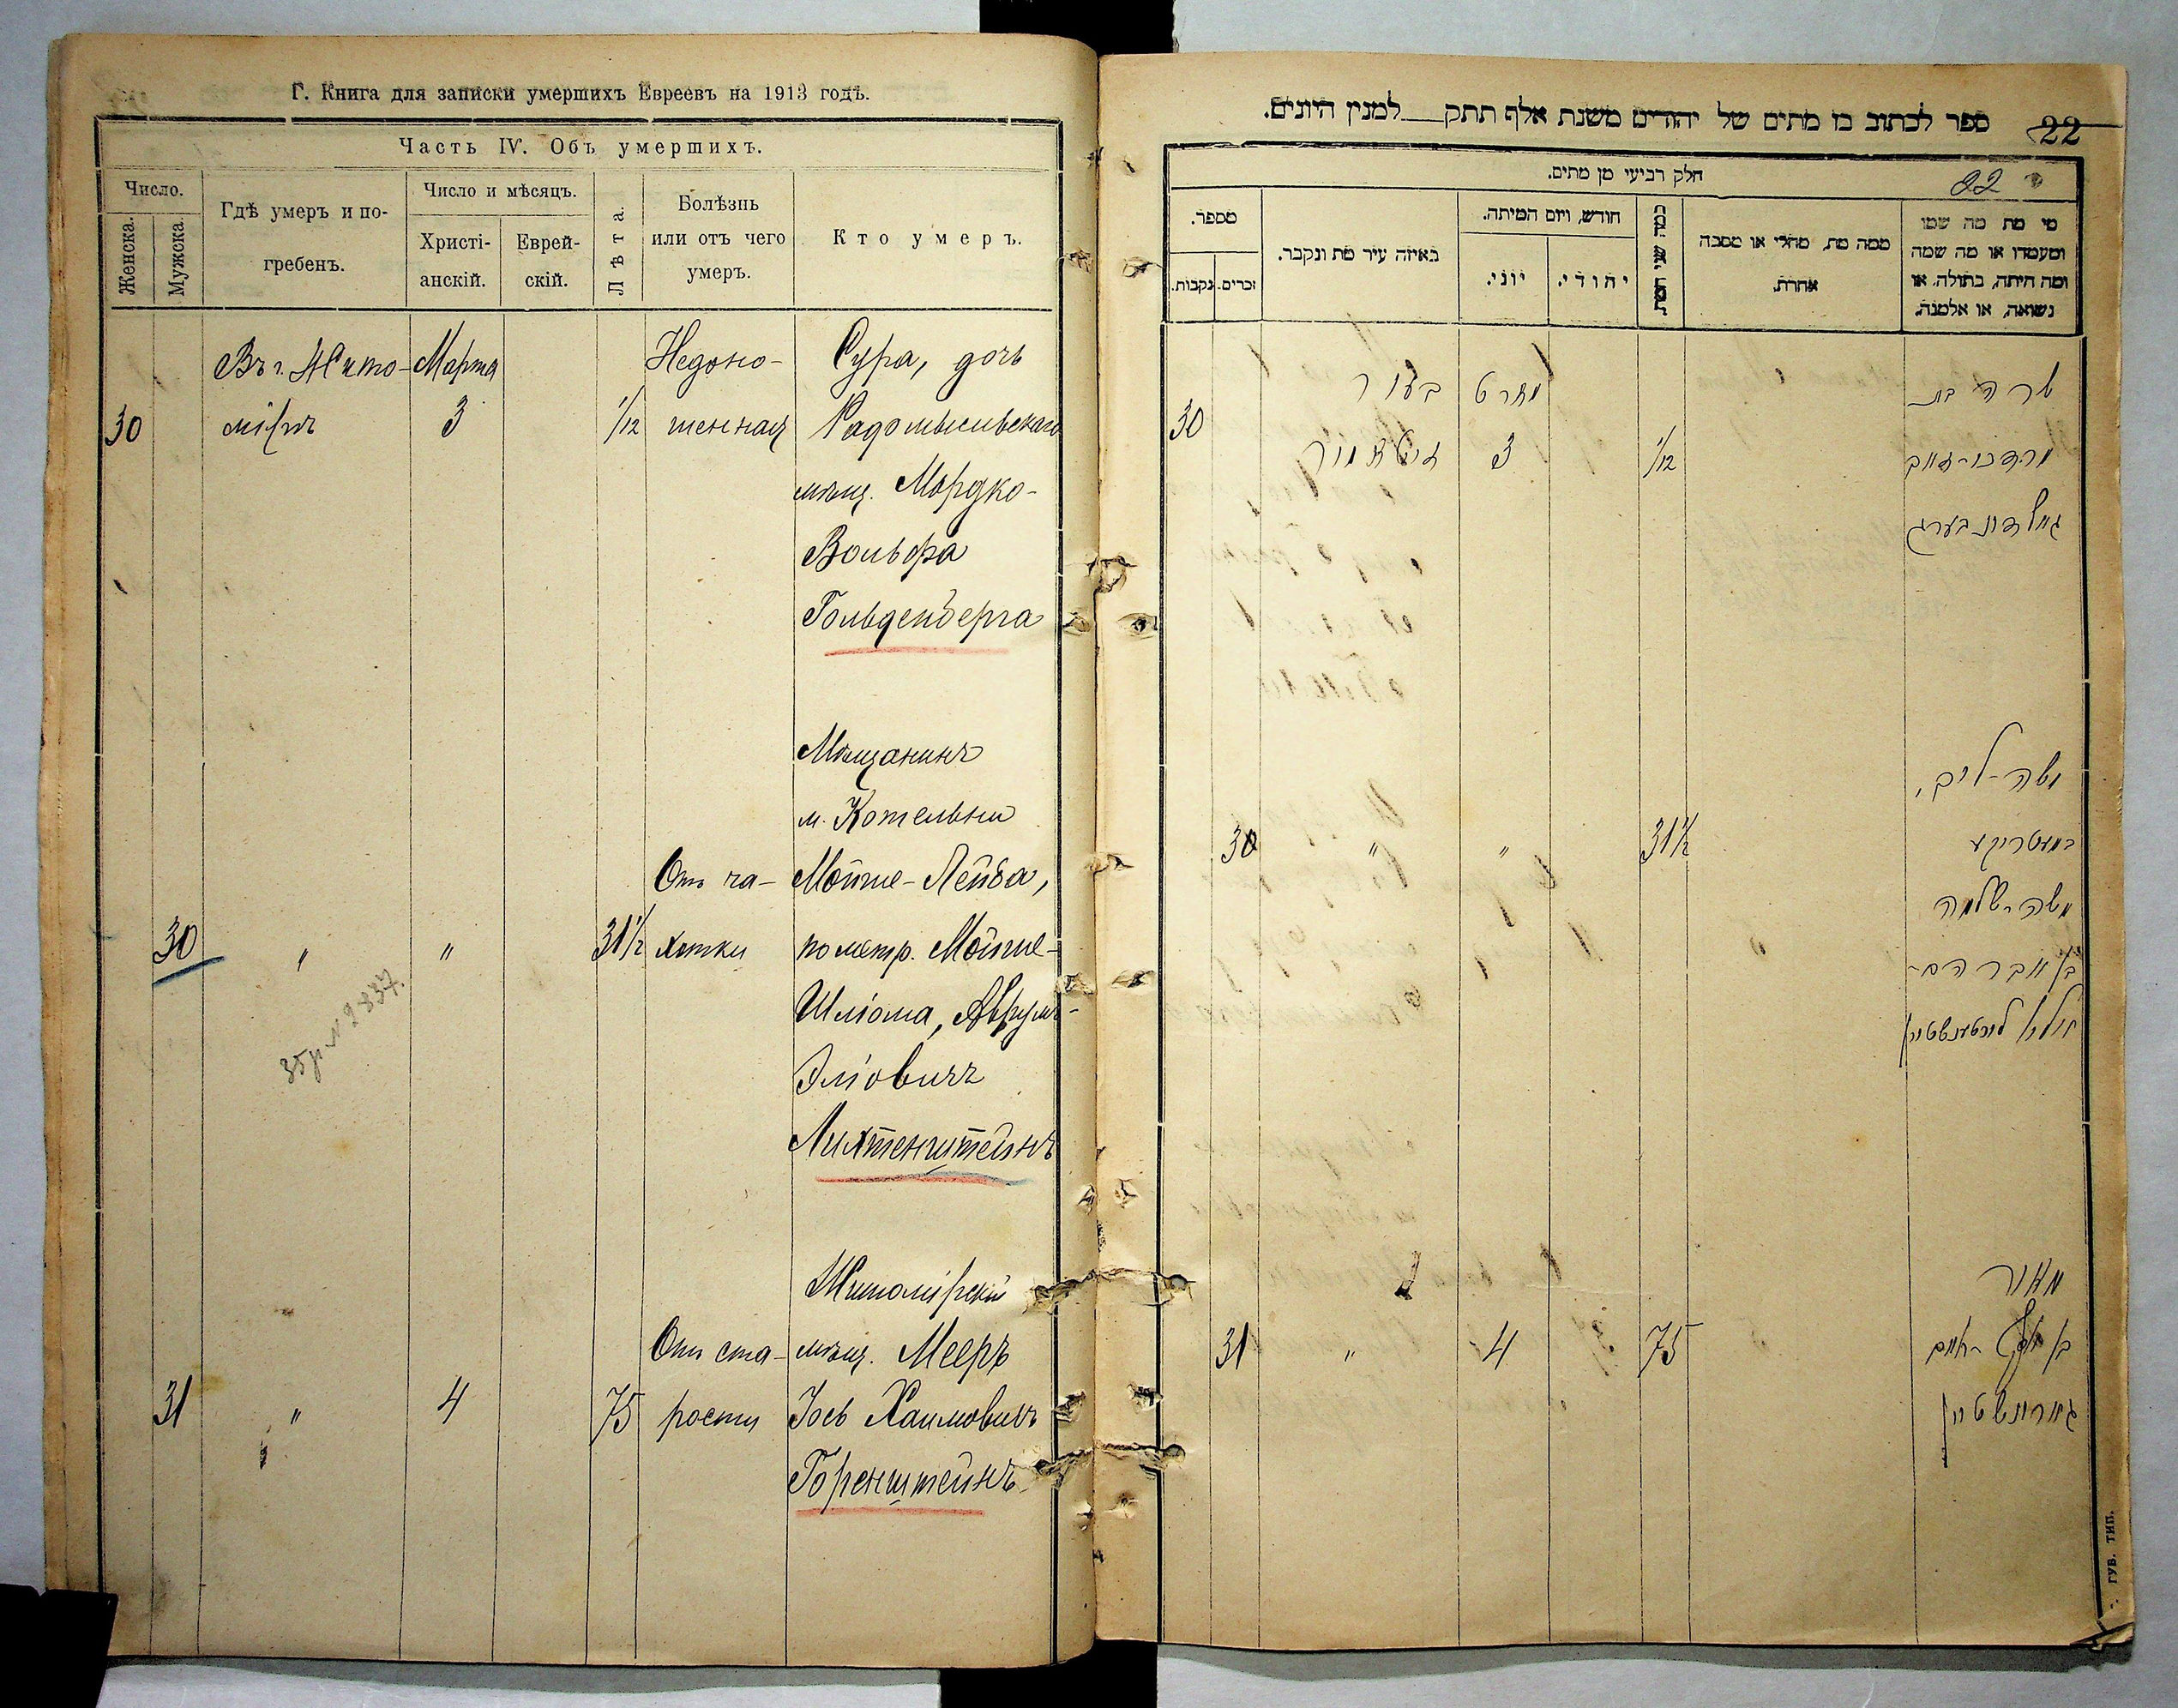 Г. Книга для записки умершихъ Евреевъ на 1913 годъ.
Часть IV. Объ умершихъ.
Число.
Женска.
Мужска.
Гдѣ умеръ и по-
гребенъ.
Число и мѣсяцъ.
Христі-
анскій.
Еврей-
скій.
Лѣта.
Болѣзнь
или отъ чего
умеръ.
Кто умеръ.
Въ г. Жито- Марта Недоно- Сура, дочь
30 мірѣ 3 1/12 шенная Радомысльскаго
мѣщ. Мордко-
Вольфа
Гольденберга
Мѣщанинъ
м. Котельни
Отъ ча- Мойше-Лейба,
30 " " 31½ хотки по метр. Мойше-
Шліома, Аврумъ-
Эліовичъ
Лихтенштейнъ
35р. № 2837.
Житомірскій
Отъ ста- мѣщ. Мееръ
31 " 4 75 рости Іось Хаимовичъ
Горенштейнъ
ספר לכתוב בו מתים של יהודים משנת אלף תתק למנין היונים.
22
חלק רביעי מן מתים.
22
מספר.
זכרים.
נקבות.
באיזה עיר מת ונקבר.
חודש, ויום המיתה.
יוני.
יהודי.
כמה שני המת
ממה מת, מחלי או מסבה
אחרת.
מי מת מה שמו
ומעמדו או מה שמה
ומה היתה, בתולה, או
נשואה, או אלמנה.
בעיר מארט שרה בת
30 זיטאמיר 3 1/12 מרדכי-זאב
גאלדענבערג
משה-ליב,
30 " " 31½ במעטריקע
משה-שלמה
בן אברהם-
אליה ליכטענשטיין
מאיר
31 " 4 75
גארענשטיין
ГУБ. ТИП.